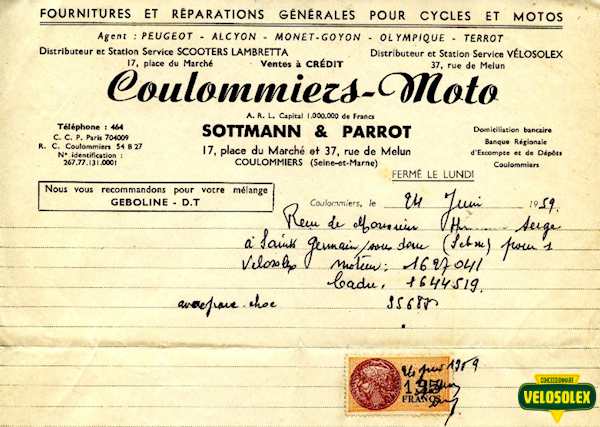 FOURNITURES ET RÉPARATIONS GÉNÉRALES POUR CYCLES ET MOTOS
Agent : PEUGEOT - ALCYON - MONET-GOYON - OLYMPIQUE - TERROT
Distributeur et Station Service SCOOTERS LAMBRETTA
17, place du Marché
Ventes à CRÉDIT
Distributeur et Station Service VÉLOSOLEX
37, rue de Melun
Coulommiers-Moto
A. R. L. Capital 1.000.000 de Francs
SOTTMANN & PARROT
17, place du Marché et 37, rue de Melun
COULOMMIERS (Seine-et-Marne)
Téléphone : 464
C. C. P. Paris 704009
R. C. Coulommiers 54 B 27
N° identification :
267.77.131.0001
Domiciliation bancaire
Banque Régionale
d'Escompte et de Dépôts
Coulommiers
FERMÉ LE LUNDI
Nous vous recommandons pour votre mélange
GEBOLINE - D.T
Coulommiers, le 24 Juin 1959
Reçu de Monsieur Serge
à Saint Germain sous Doue (S et M) pour 1
Velosolex moteur : 1627041
Cadre : 1644519.
avec pare-choc
24 juin 1959
FRANCS
CONCESSIONNAIRE
VELOSOLEX